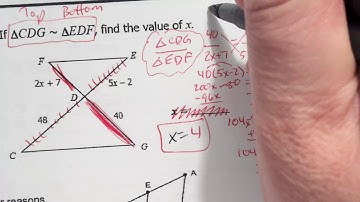 Top Bottom
If △CDG ~ △EDF, find the value of x.
F E
2x + 7 5x − 2
D
48 40
C G
△CDG 40
△EDF 2x+7 5
40(5x-2)
200x-80
-96x
x=4
104x
104
E A
r reasons